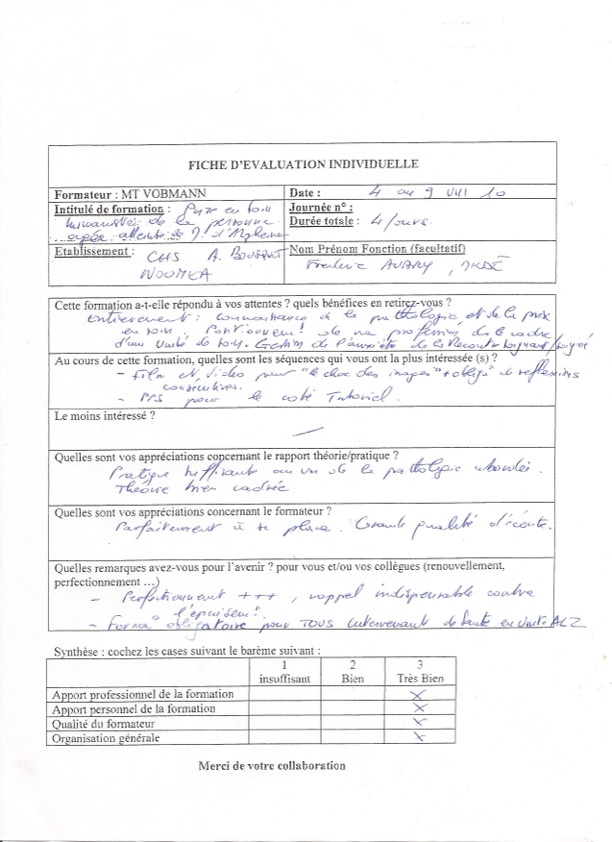 FICHE D'EVALUATION INDIVIDUELLE
Formateur : MT VOBMANN
Date : 4 au 9 VIII 10
Intitulé de formation : Prise en soin
humanisée de la personne
âgée atteinte de M. d'Alzheimer
Journée n° :
Durée totale : 4 jours
Etablissement : CHS A. BOUSQUET
NOUMEA
Nom Prénom Fonction (facultatif)
Frederic AUBRY, IKDE
Cette formation a-t-elle répondu à vos attentes ? quels bénéfices en retirez-vous ?
Entièrement : connaissances de la pathologie et de la prise
en soin. Positionnem! de ma profession de le cadre
d'un unité de soin. Gestion de l'anxiété de la Rencontre soignant/soigné
Au cours de cette formation, quelles sont les séquences qui vous ont la plus intéressée (s) ?
- Film et vidéo pour "le choc des images" + de reflexions
consécutives.
- PPS pour le coté Tutoriel.
Le moins intéressé ?
Quelles sont vos appréciations concernant le rapport théorie/pratique ?
Pratique suffisant au vu de la pathologie abordée.
Théorie bien cadrée
Quelles sont vos appréciations concernant le formateur ?
Parfaitement à sa place. Grande qualité d'écoute.
Quelles remarques avez-vous pour l'avenir ? pour vous et/ou vos collègues (renouvellement,
perfectionnement ...)
- Perfectionnement +++, rappel indispensable contre
l'épuisem!.
- Forma° obligatoire pour TOUS intervenant de Santé en Unité ALZ
Synthèse : cochez les cases suivant le barème suivant :
1 2 3
insuffisant Bien Très Bien
Apport professionnel de la formation X
Apport personnel de la formation X
Qualité du formateur X
Organisation générale X
Merci de votre collaboration